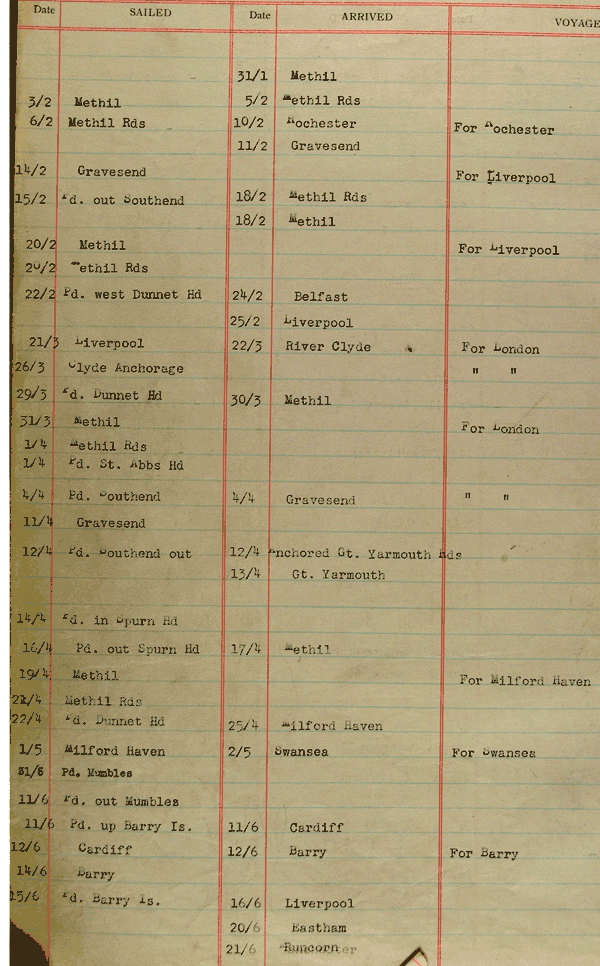 Date SAILED Date ARRIVED VOYAGE
31/1 Methil
3/2 Methil 5/2 Methil Rds
6/2 Methil Rds 10/2 Rochester For Rochester
11/2 Gravesend
14/2 Gravesend For Liverpool
15/2 Pd. out Southend 18/2 Methil Rds
18/2 Methil
20/2 Methil For Liverpool
20/2 Methil Rds
22/2 Pd. west Dunnet Hd 24/2 Belfast
25/2 Liverpool
21/3 Liverpool 22/3 River Clyde For London
26/3 Clyde Anchorage " "
29/3 Pd. Dunnet Hd 30/3 Methil
31/3 Methil For London
1/4 Methil Rds
1/4 Pd. St. Abbs Hd
4/4 Pd. Southend 4/4 Gravesend " "
11/4 Gravesend
12/4 Pd. Southend out 12/4 Anchored Gt. Yarmouth Rds
13/4 Gt. Yarmouth
14/4 Pd. in Spurn Hd
16/4 Pd. out Spurn Hd 17/4 Methil
19/4 Methil For Milford Haven
21/4 Methil Rds
22/4 Pd. Dunnet Hd 25/4 Milford Haven
1/5 Milford Haven 2/5 Swansea For Swansea
Pd. Mumbles
11/6 Pd. out Mumbles
11/6 Pd. up Barry Is. 11/6 Cardiff
12/6 Cardiff 12/6 Barry For Barry
14/6 Barry
15/6 Pd. Barry Is. 16/6 Liverpool
20/6 Eastham
21/6 Runcorn